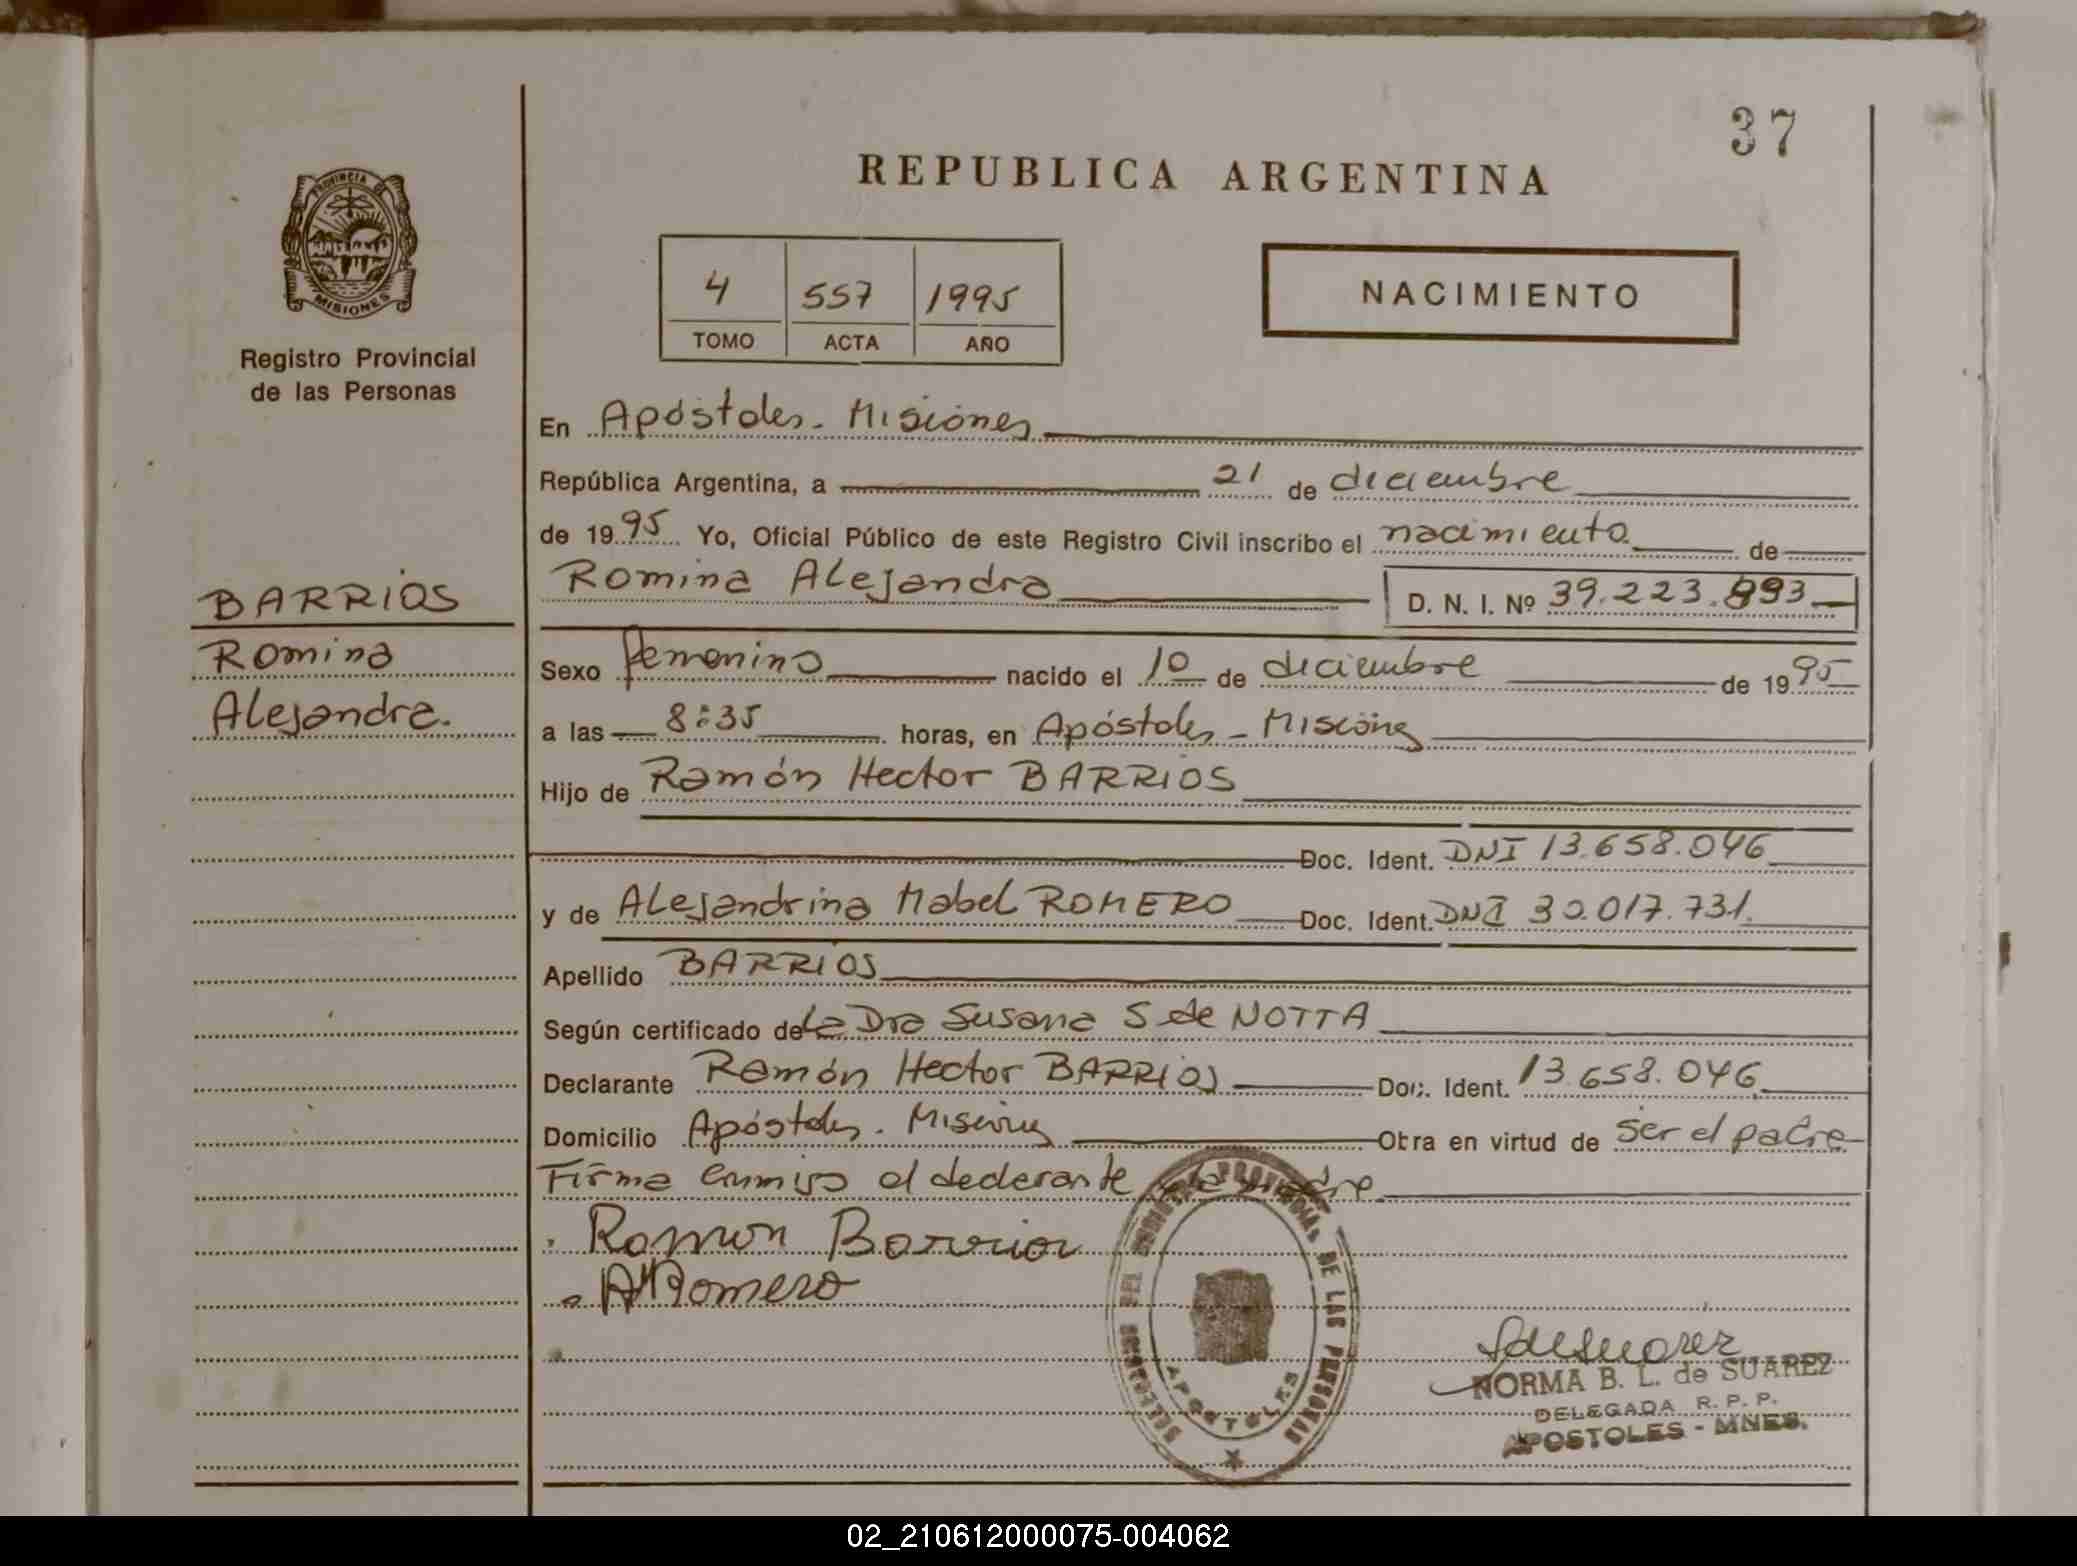 37
REPUBLICA ARGENTINA
PROVINCIA DE
MISIONES
Registro Provincial
de las Personas
4 557 1995
TOMO ACTA AÑO
NACIMIENTO
En Apóstoles - Misiones
República Argentina, a 21 de diciembre
de 1995 Yo, Oficial Público de este Registro Civil inscribo el nacimiento de
BARRIOS
Romina Alejandra D. N. I. Nº 39.223.893
Romina
Sexo femenino nacido el 10 de diciembre de 1995
Alejandra.
a las 8:35 horas, en Apóstoles - Misiones
Hijo de Ramón Hector BARRIOS
Doc. Ident. DNI 13.658.046
y de Alejandrina Mabel ROMERO Doc. Ident. DNI 30.017.731.
Apellido BARRIOS
Según certificado de La Dra Susana S de NOTTA
Declarante Ramón Hector BARRIOS Doc. Ident. 13.658.046
Domicilio Apóstoles - Misiones Obra en virtud de ser el padre
Firma conmigo el declarante y la madre
Ramon Barrios
AMRomero
PROVINCIAL DE LAS PERSONAS
APOSTOLES
SdeSuarez
NORMA B. L. de SUAREZ
DELEGADA R. P. P.
APOSTOLES - MNES.
02_210612000075-004062